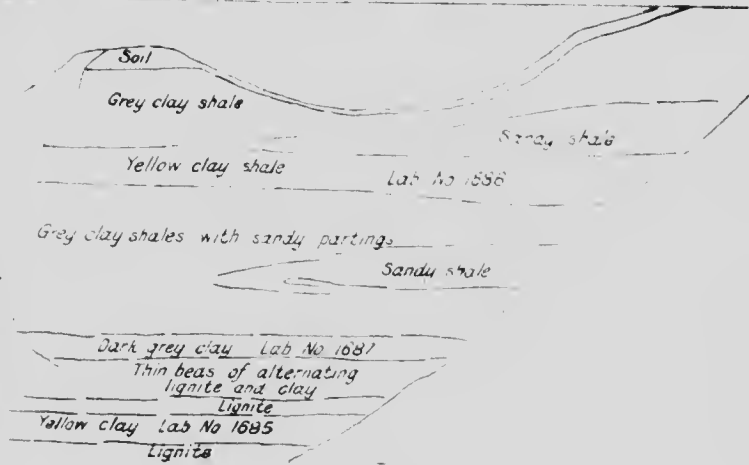 Soil
Grey clay shale
Sandy shale
Yellow clay shale
Lab No 1686
Grey clay shales with sandy partings
Sandy shale
Dark grey clay Lab No 1687
Thin beas of alternating
lignite and clay
Lignite
Yellow clay Lab No 1685
Lignite